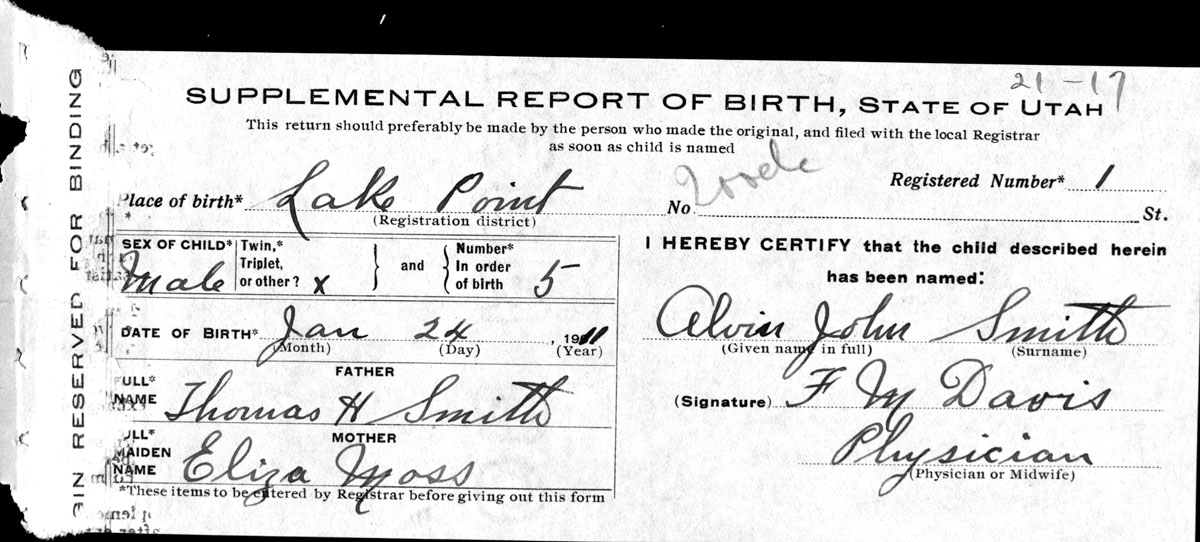 21-17
SUPPLEMENTAL REPORT OF BIRTH, STATE OF UTAH
This return should preferably be made by the person who made the original, and filed with the local Registrar
as soon as child is named
Place of birth* Lake Point
(Registration district)
Registered Number* 1
No St.
SEX OF CHILD* Male
Twin,*
Triplet,
or other? X
and
Number*
In order
of birth 5
DATE OF BIRTH* Jan 24, 1911
(Month) (Day) (Year)
FATHER
FULL*
NAME Thomas H Smith
MOTHER
MAIDEN
NAME Eliza Moss
*These items to be entered by Registrar before giving out this form
I HEREBY CERTIFY that the child described herein
has been named:
Alvin John Smith
(Given name in full) (Surname)
(Signature) F M Davis
Physician
(Physician or Midwife)
RESERVED FOR BINDING